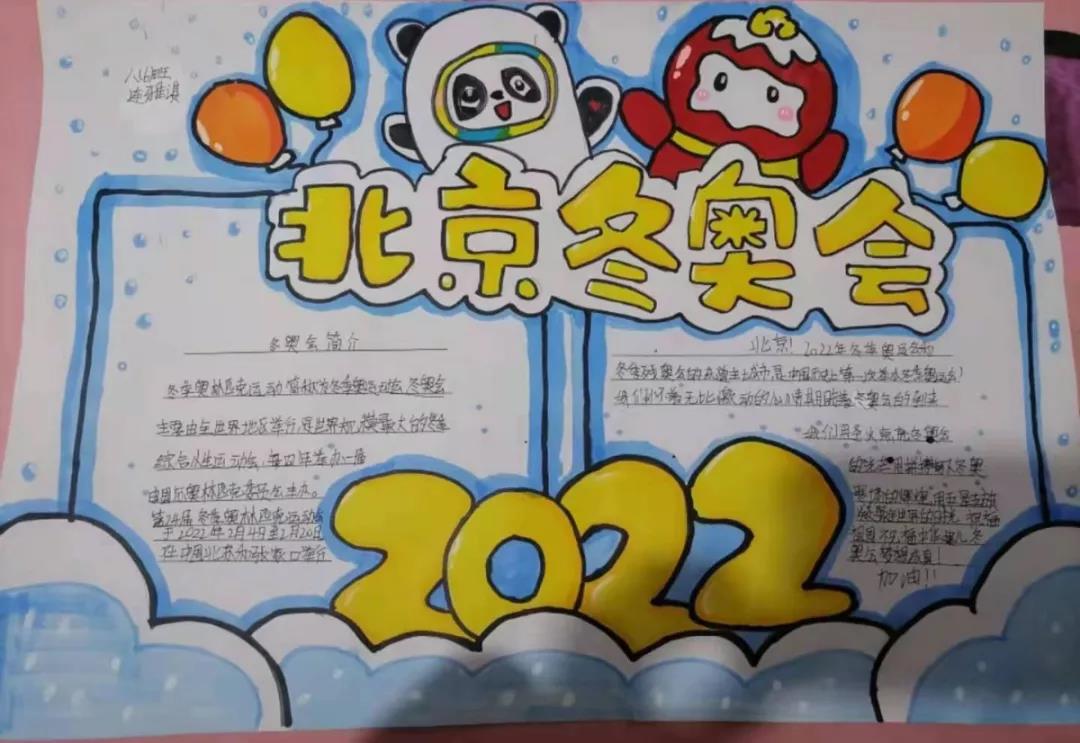 八16班
连雅淇
北京冬奥会
冬奥会简介
冬季奥林匹克运动 简称为冬季奥运动会 冬奥会
主要由全世界地区举行,是世界规模最大的冬季
综合性运动会,每四年举办一届
由国际奥林匹克委员会主办。
第24届 冬季奥林匹克运动会
于2022年2月4日至2月20日
在中国北京和张家口举行
北京! 2022年冬季奥运会和
冬季残奥会的主办城市,是中国历史上第一次举办冬季奥运会!
我们怀着无比激动的心情期盼着冬奥会的到来
我们用圣火点燃冬奥会
加油!!
2022